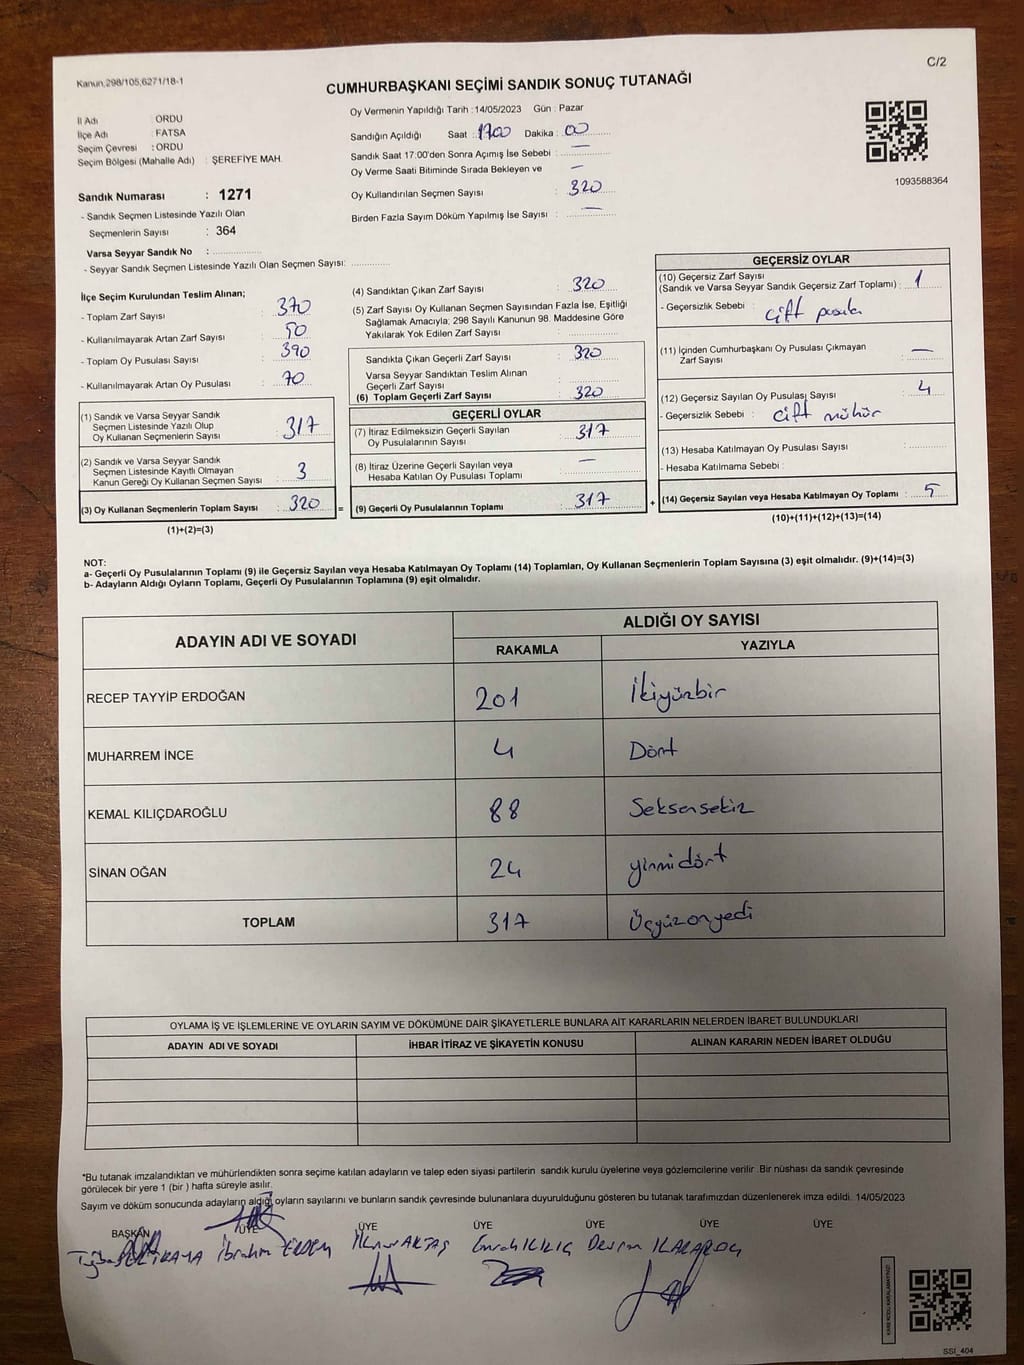 Kanun,298/105,6271/18-1
C/2
CUMHURBAŞKANI SEÇİMİ SANDIK SONUÇ TUTANAĞI
Oy Vermenin Yapıldığı Tarih :14/05/2023 Gün : Pazar
İl Adı : ORDU
İlçe Adı : FATSA
Seçim Çevresi : ORDU
Seçim Bölgesi (Mahalle Adı) : ŞEREFİYE MAH.
Sandığın Açıldığı Saat : 1700 Dakika : 00
Sandık Saat 17:00'den Sonra Açımış İse Sebebi : —
Oy Verme Saati Bitiminde Sırada Bekleyen ve —
Oy Kullandırılan Seçmen Sayısı : 320
Birden Fazla Sayım Döküm Yapılmış İse Sayısı : —
1093588364
Sandık Numarası : 1271
- Sandık Seçmen Listesinde Yazılı Olan
Seçmenlerin Sayısı : 364
Varsa Seyyar Sandık No :
- Seyyar Sandık Seçmen Listesinde Yazılı Olan Seçmen Sayısı:
İlçe Seçim Kurulundan Teslim Alınan;
- Toplam Zarf Sayısı : 370
- Kullanılmayarak Artan Zarf Sayısı : 50
- Toplam Oy Pusulası Sayısı : 390
- Kullanılmayarak Artan Oy Pusulası : 70
(1) Sandık ve Varsa Seyyar Sandık
Seçmen Listesinde Yazılı Olup
Oy Kullanan Seçmenlerin Sayısı : 317
(2) Sandık ve Varsa Seyyar Sandık
Seçmen Listesinde Kayıtlı Olmayan
Kanun Gereği Oy Kullanan Seçmen Sayısı : 3
(3) Oy Kullanan Seçmenlerin Toplam Sayısı : 320
(1)+(2)=(3)
=
(4) Sandıktan Çıkan Zarf Sayısı : 320
(5) Zarf Sayısı Oy Kullanan Seçmen Sayısından Fazla İse, Eşitliği
Sağlamak Amacıyla; 298 Sayılı Kanunun 98. Maddesine Göre
Yakılarak Yok Edilen Zarf Sayısı :
Sandıkta Çıkan Geçerli Zarf Sayısı : 320
Varsa Seyyar Sandıktan Teslim Alınan
Geçerli Zarf Sayısı :
(6) Toplam Geçerli Zarf Sayısı : 320
GEÇERLİ OYLAR
(7) İtiraz Edilmeksizin Geçerli Sayılan
Oy Pusulalarının Sayısı : 317
(8) İtiraz Üzerine Geçerli Sayılan veya
Hesaba Katılan Oy Pusulası Toplamı : —
(9) Geçerli Oy Pusulalarının Toplamı : 317
+
GEÇERSİZ OYLAR
(10) Geçersiz Zarf Sayısı
(Sandık ve Varsa Seyyar Sandık Geçersiz Zarf Toplamı) : 1
- Geçersizlik Sebebi : çift pusula
(11) İçinden Cumhurbaşkanı Oy Pusulası Çıkmayan
Zarf Sayısı : —
(12) Geçersiz Sayılan Oy Pusulası Sayısı : 4
- Geçersizlik Sebebi : çift mühür
(13) Hesaba Katılmayan Oy Pusulası Sayısı :
- Hesaba Katılmama Sebebi :
(14) Geçersiz Sayılan veya Hesaba Katılmayan Oy Toplamı : 5
(10)+(11)+(12)+(13)=(14)
NOT:
a- Geçerli Oy Pusulalarının Toplamı (9) ile Geçersiz Sayılan veya Hesaba Katılmayan Oy Toplamı (14) Toplamları, Oy Kullanan Seçmenlerin Toplam Sayısına (3) eşit olmalıdır. (9)+(14)=(3)
b- Adayların Aldığı Oyların Toplamı, Geçerli Oy Pusulalarının Toplamına (9) eşit olmalıdır.
ADAYIN ADI VE SOYADI
ALDIĞI OY SAYISI
RAKAMLA YAZIYLA
RECEP TAYYİP ERDOĞAN 201 İkiyüzbir
MUHARREM İNCE 4 Dört
KEMAL KILIÇDAROĞLU 88 Seksensekiz
SİNAN OĞAN 24 yirmidört
TOPLAM 317 Üçyüzonyedi
OYLAMA İŞ VE İŞLEMLERİNE VE OYLARIN SAYIM VE DÖKÜMÜNE DAİR ŞİKAYETLERLE BUNLARA AİT KARARLARIN NELERDEN İBARET BULUNDUKLARI
ADAYIN ADI VE SOYADI İHBAR İTİRAZ VE ŞİKAYETİN KONUSU ALINAN KARARIN NEDEN İBARET OLDUĞU
*Bu tutanak imzalandıktan ve mühürlendikten sonra seçime katılan adayların ve talep eden siyasi partilerin sandık kurulu üyelerine veya gözlemcilerine verilir. Bir nüshası da sandık çevresinde
görülecek bir yere 1 (bir ) hafta süreyle asılır.
Sayım ve döküm sonucunda adayların aldığı oyların sayılarını ve bunların sandık çevresinde bulunanlara duyurulduğunu gösteren bu tutanak tarafımızdan düzenlenerek imza edildi. 14/05/2023
BAŞKAN ÜYE ÜYE ÜYE ÜYE ÜYE ÜYE
İbrahim ERDEM İlknur AKTAŞ Emrah KILIÇ
SSI_404